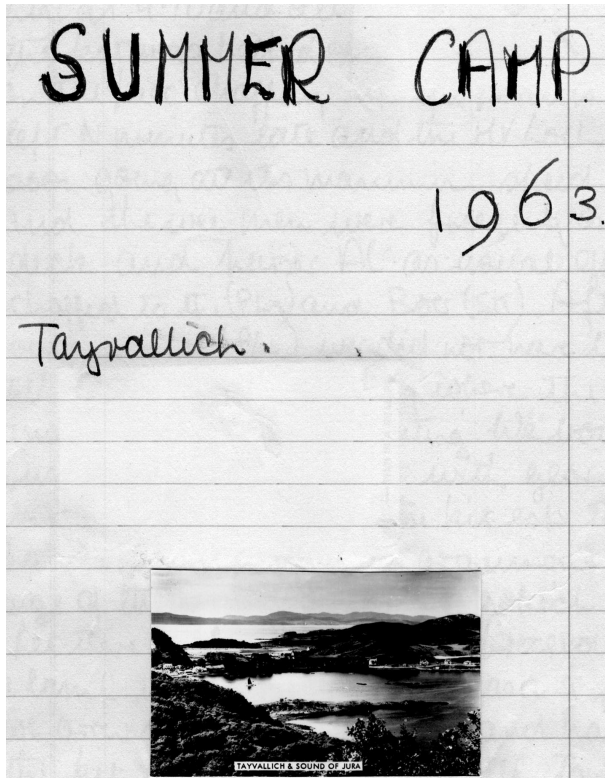 SUMMER CAMP.
1963.
Tayvallich.
TAYVALLICH & SOUND OF JURA